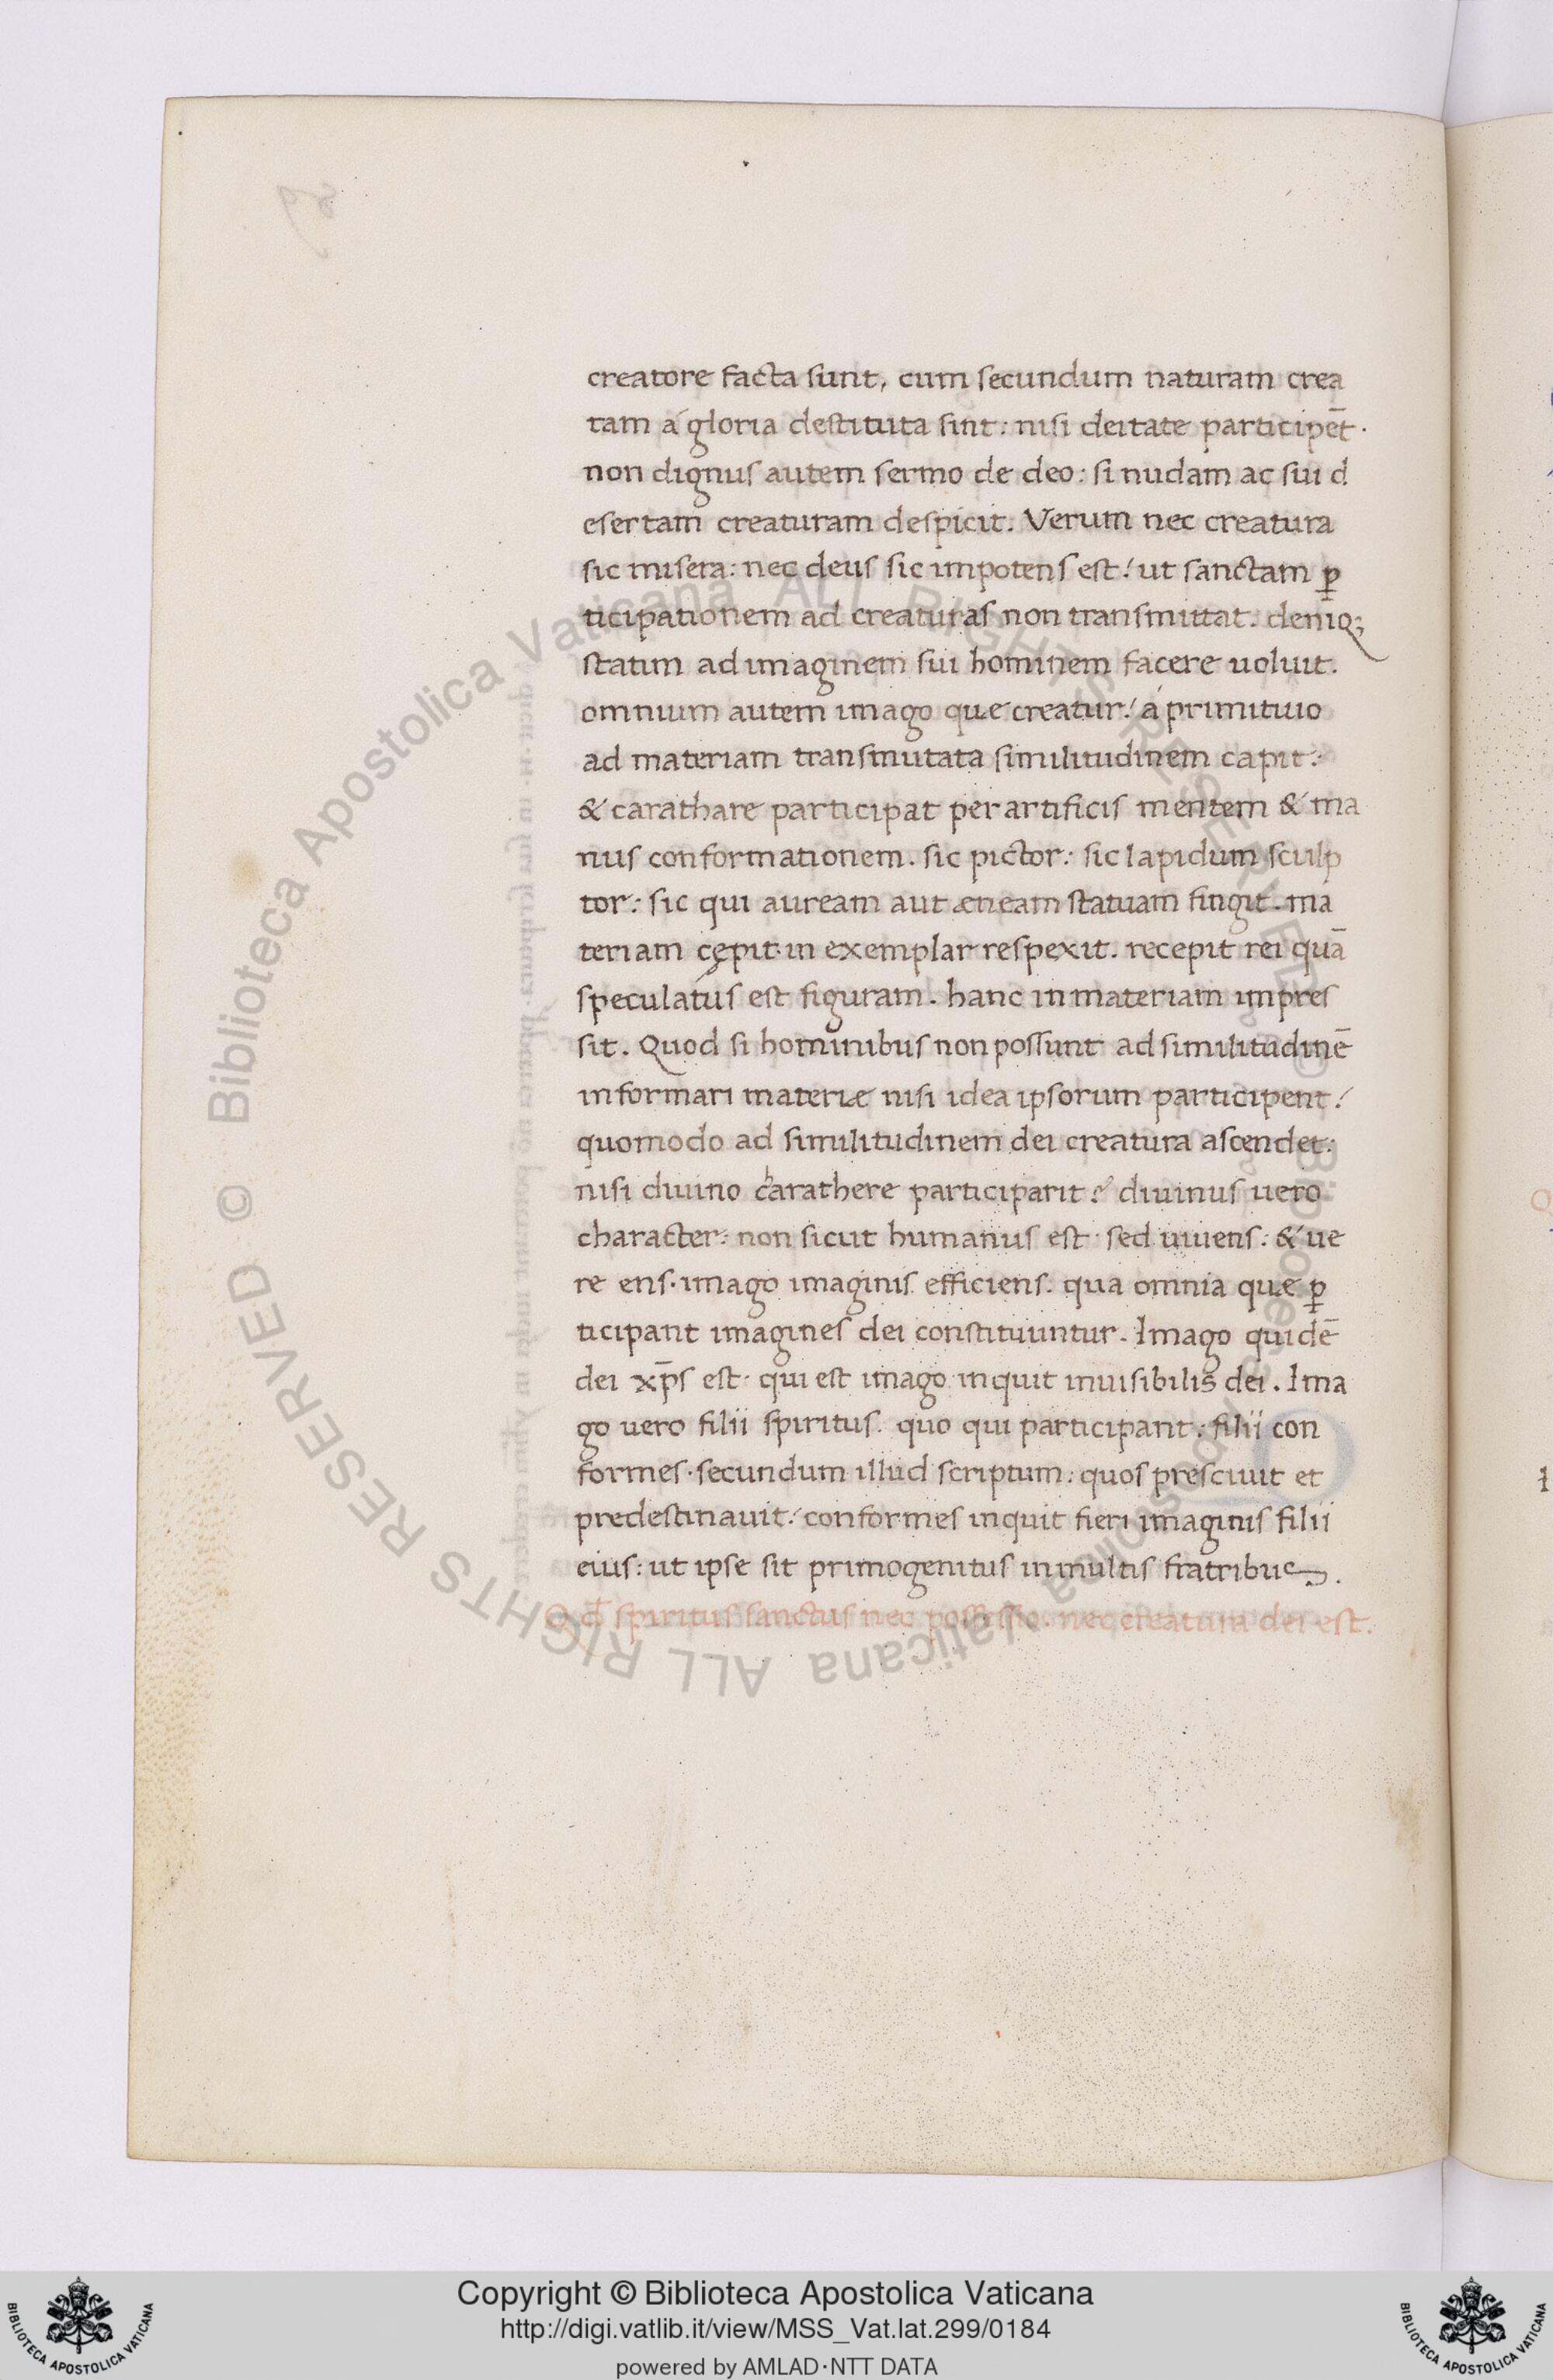 creatore facta sunt, cum secundum naturam crea
tam á gloria destituta sint: nisi deitate participēt.
non dignus autem sermo de deo: si nudam ac sui d
esertam creaturam despicit. Verum nec creatura
sic misera: nec deus sic impotens est: ut sanctam ꝑ
ticipationem ad creaturas non transmittat. deniq;
statim ad imaginem sui hominem facere uoluit.
omnium autem imago que creatur: á primitiuo
ad materiam transmutata similitudinem capit:
& carathare participat per artificis mentem & ma
nus conformationem. sic pictor: sic lapidum sculp
tor: sic qui auream aut æneam statuam fingit. ma
teriam cępit. in exemplar respexit. recepit rei quā
speculatus est figuram. hanc in materiam impres
sit. Quod si hominibus non possunt ad similitudinē
informari materiæ nisi idea ipsorum participent:
quomodo ad similitudinem dei creatura ascendet:
nisi diuino charathere participarit? diuinus uero
character: non sicut humanus est. sed uiuens: & ue
re ens. imago imaginis efficiens. qua omnia quæ ꝑ
ticipant imagines dei constituuntur. Imago quidē
dei xp̄s est. qui est imago inquit inuisibilis dei. Ima
go uero filii spiritus. quo qui participant: filii con
formes. secundum illud scriptum: quos presciuit et
predestinauit: conformes inquit fieri imaginis filii
eius: ut ipse sit primogenitus in multis fratribus.
Q đ spiritus sanctus nec possessio. nec creatura dei est.
Copyright © Biblioteca Apostolica Vaticana
http://digi.vatlib.it/view/MSS_Vat.lat.299/0184
powered by AMLAD·NTT DATA
BIBLIOTECA APOSTOLICA VATICANA
BIBLIOTECA APOSTOLICA VATICANA
© Biblioteca Apostolica Vaticana ALL RIGHTS RESERVED
© Biblioteca Apostolica Vaticana ALL RIGHTS RESERVED